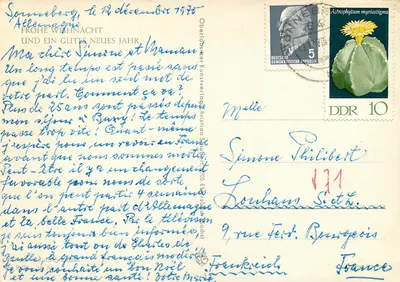 Sonneberg, le 12 décembre 1975
Allemagne
FROHE WEIHNACHT
UND EIN GUTES NEUES JAHR
Ma chère Simone et Maman
Un long temps est passé sans
que j'ai lu un seul mot de
votre part. Comment ça va?
Plus de 25 ans sont passés depuis
mon séjour à Buvy! Le temps
passe trop vite! Quant-même
j'espère pour un revoir en France
avant que nous sommes morts.
Peut-être il y a un changement
favorable pour nous de sorte
que l'on peut partir 4 semaines
dans l'autre part d'Allemagne
et la belle France. Par la télévision
je suis toujours bien informée,
j'ai aussi tout vu de Charles de
Gaulle, le grand français modèle
Je vous souhaite un bon Noël
et une bonne santé! Votre
5
DEUTSCHE DEMOKRATISCHE REPUBLIK
Astrophytum myriostigma
DDR 10
Melle
Simone Philibert
171
Louhans S.et.L.
9, rue Ferd. Bourgeois
Frankreich
France